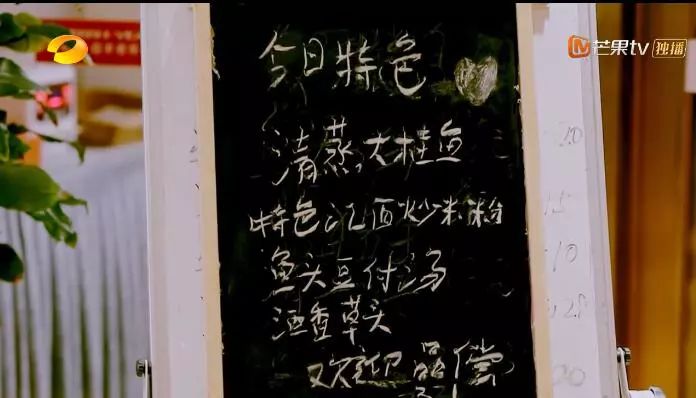 芒果tv 独播
今日特色
清蒸大桂鱼
特色江西炒米粉
鱼头豆付汤
酒香草头
欢迎品尝
20
15
10
28
20